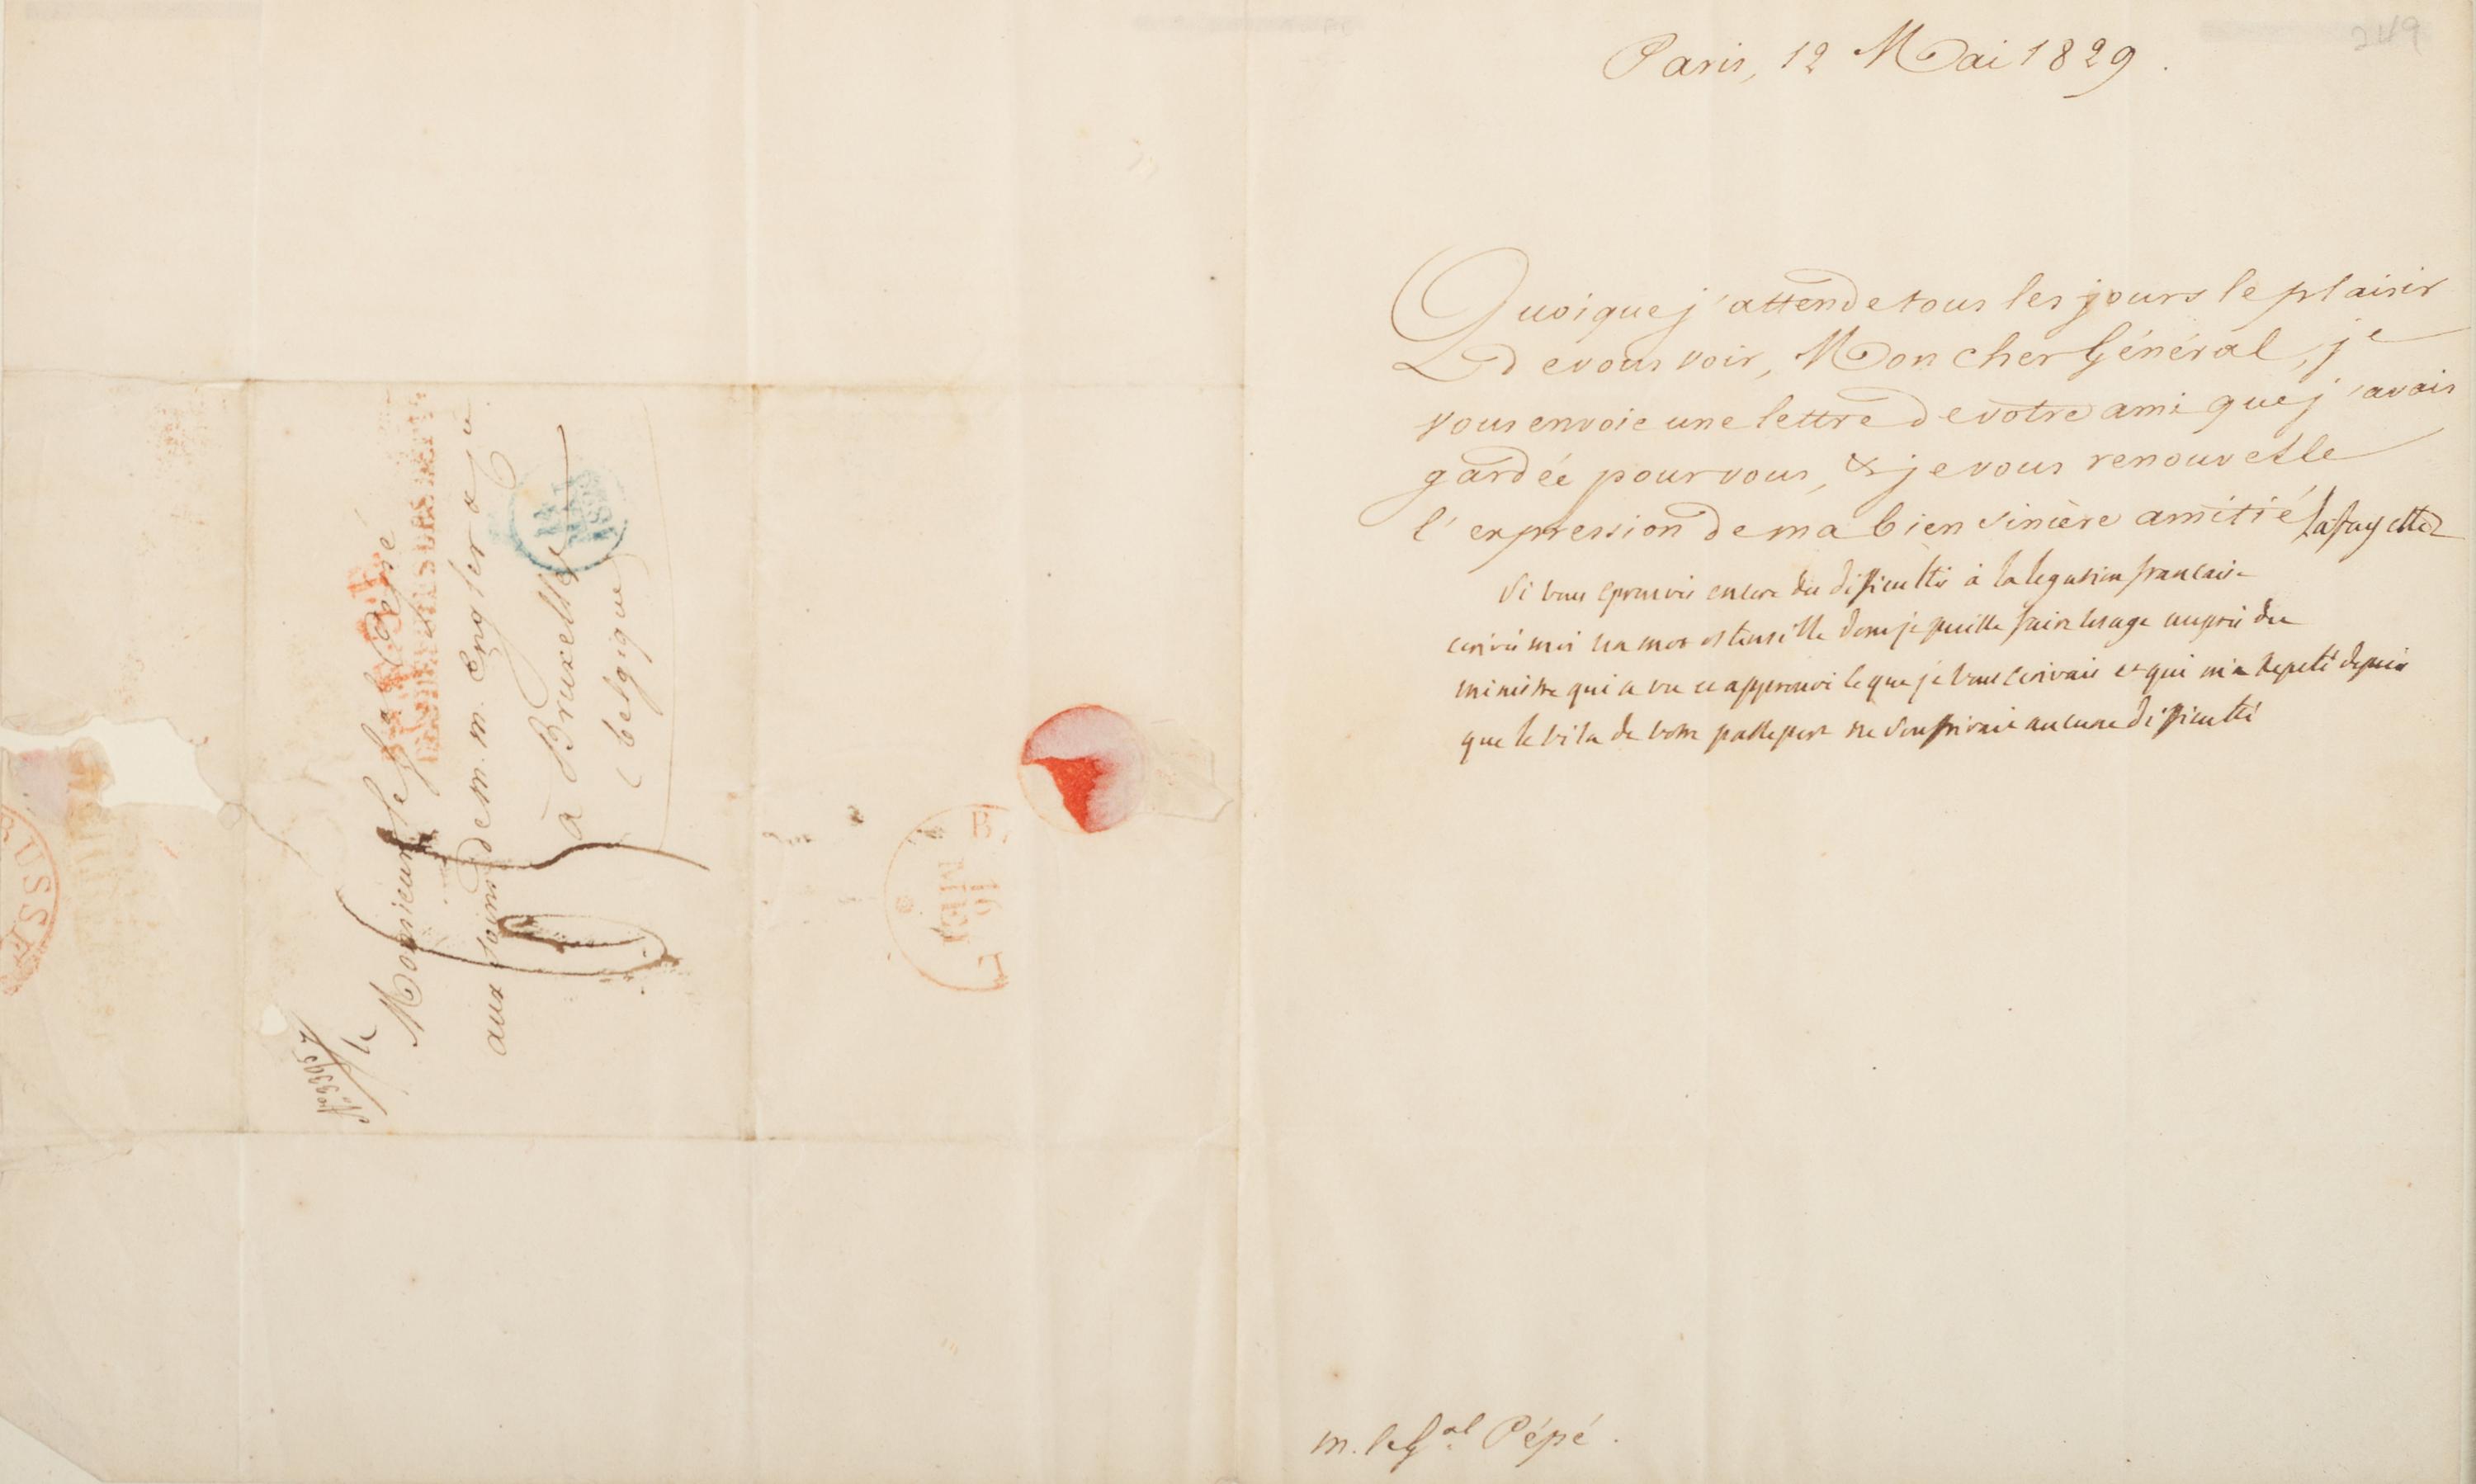 249
Paris, 12 Mai 1829.
Quoique j'attende tous les jours le plaisir
de vous voir, Mon cher Général, je
vous envoie une lettre de votre ami que j'avais
gardée pour vous, & je vous renouvelle
l'expression de ma bien sincère amitié Lafayette
Si vous eprouvés encore des difficultés à la legation francaise
ecrivés moi un mot ostensible dont je puisse faire usage auprès du
ministre qui a vu et approuvé ce que je vous ecrivais et qui m'a repeté depuis
que le visa de votre passeport ne souffrirait aucune difficulté
m. le Gal Pépé.
Monsieur le Gal Pépé
aux soins de m.m. Engler &
à Bruxelles
(belgique)
14
MAI
1829
B.
16
MEI
USSE